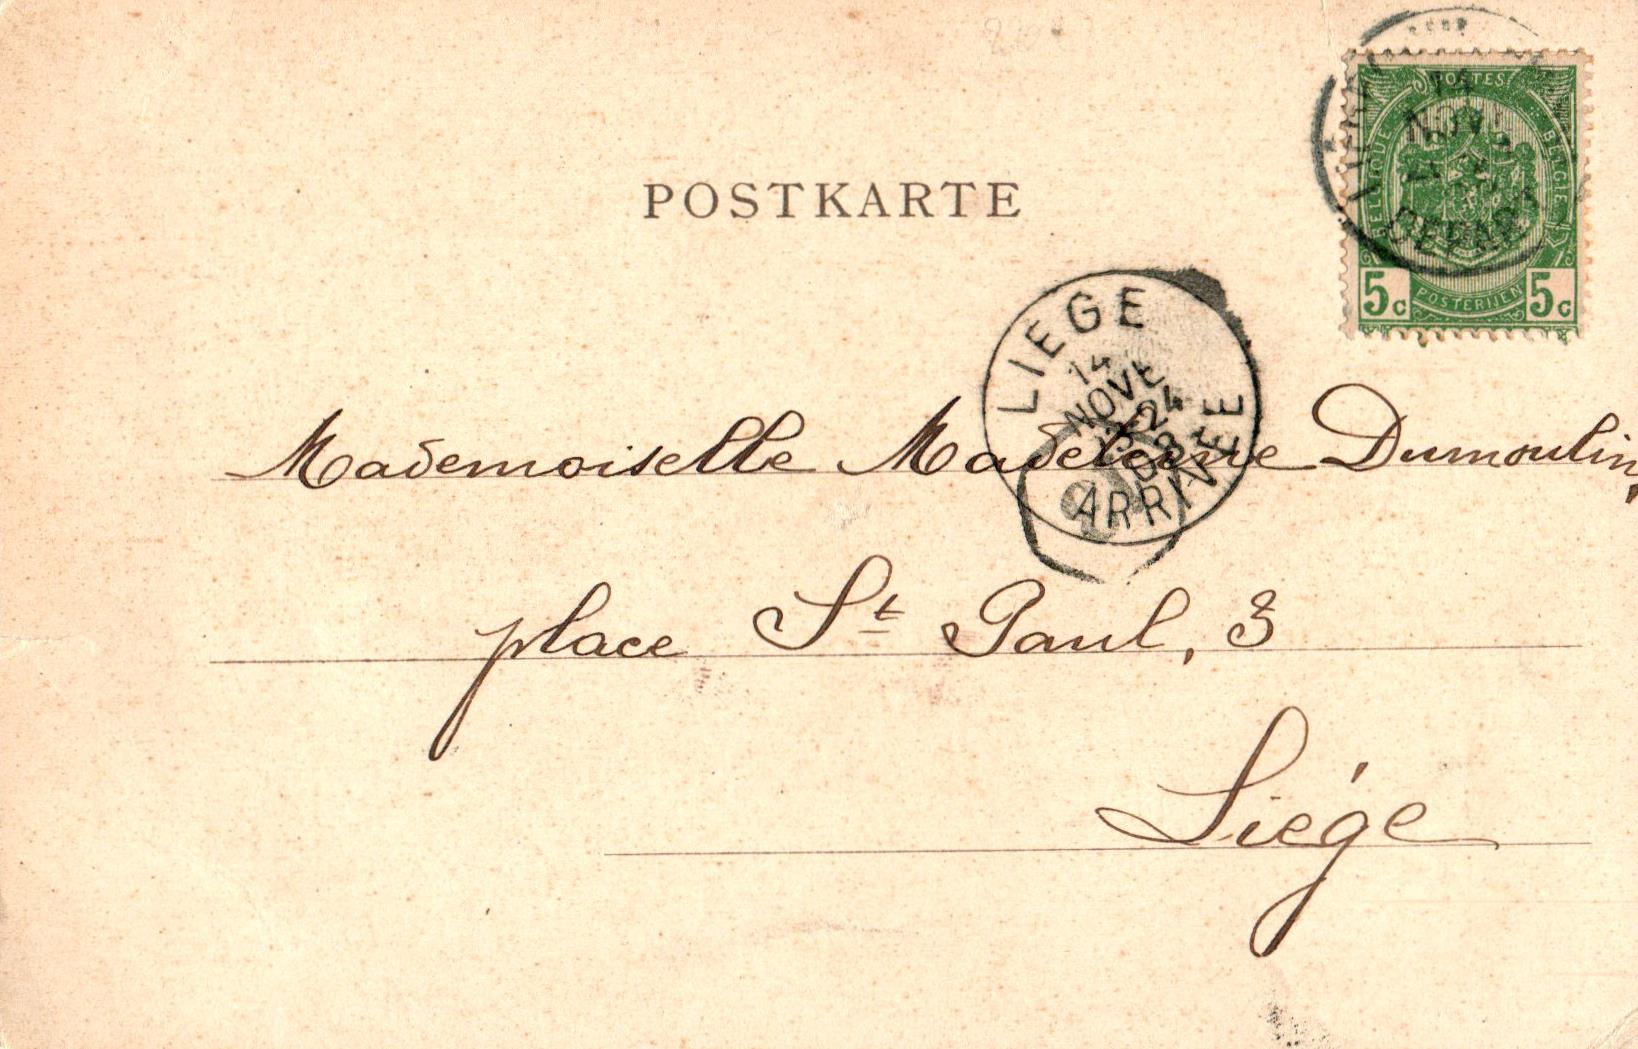 POSTES
BELGIQUE
BELGIE
NOV
DEPART
5c 5c
POSTERIJEN
POSTKARTE
LIEGE
14
NOVE
ARRIVEE
Mademoiselle Madeleine Dumoulin,
place St Paul, 3
Liége